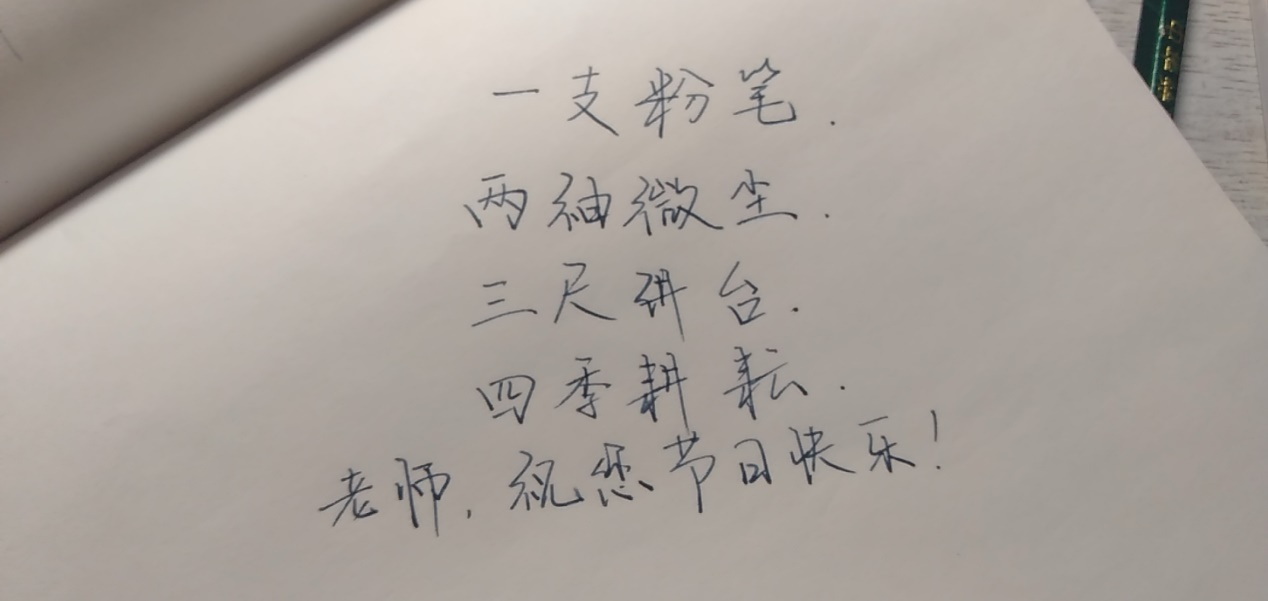 一支粉笔.
两袖微尘.
三尺讲台.
四季耕耘.
老师,祝您节日快乐!